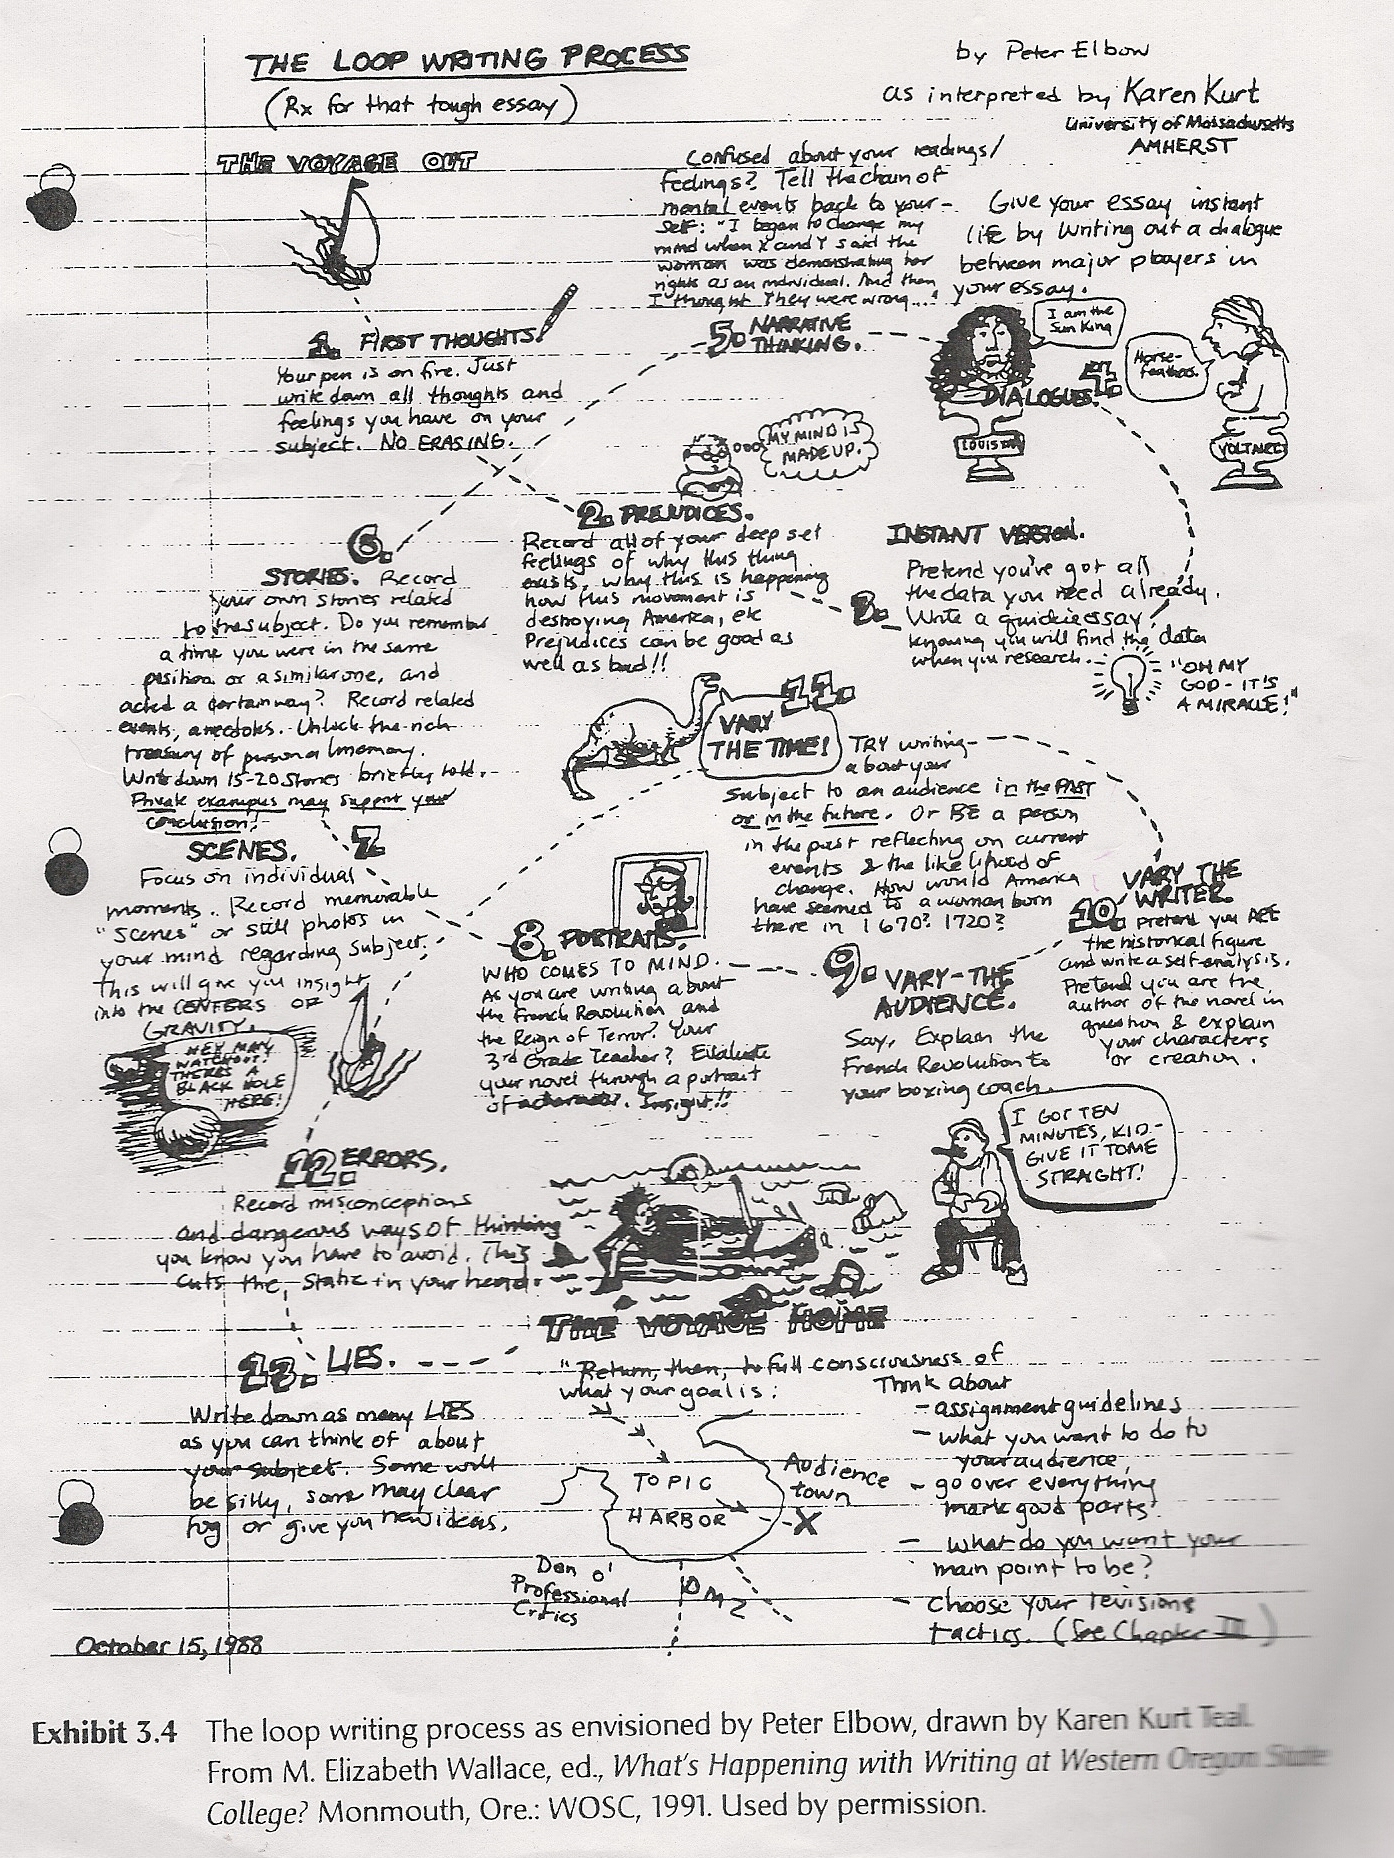 THE LOOP WRITING PROCESS
(Rx for that tough essay)
by Peter Elbow
as interpreted by Karen Kurt
University of Massachusetts
AMHERST
THE VOYAGE OUT
1. FIRST THOUGHTS!
Your pen is on fire. Just
write down all thoughts and
feelings you have on your
subject. NO ERASING.
MY MIND IS
MADE UP.
2. PREJUDICES.
Record all of your deep set
feelings of why this thing
exists, why this is happening
how this movement is
destroying America, etc
Prejudices can be good as
well as bad!!
INSTANT VERSION.
3.
Pretend you've got all
the data you need already.
Write a quickie essay!
knowing you will find the data
when you research.
"OH MY
GOD - IT'S
A MIRACLE!"
Give your essay instant
life by writing out a dialogue
between major players in
your essay.
I am the
Sun King
Horse-
feathers.
4.
DIALOGUES.
LOUIS XIV
VOLTAIRE
Confused about your readings/
feelings? Tell the chain of
mental events back to your-
self: "I began to change my
mind when X and Y said the
woman was demonstrating her
rights as an individual. And then
I thought They were wrong..."
5. NARRATIVE
THINKING.
6.
STORIES. Record
your own stories related
to the subject. Do you remember
a time you were in the same
position or a similar one, and
acted a certain way? Record related
events, anecdotes. Unlock the rich
treasury of personal memory.
Write down 15-20 stories briefly told.
Private examples may support your
conclusion!
7.
SCENES.
Focus on individual
moments.. Record memorable
"scenes" or still photos in
your mind regarding subject.
This will give you insight
into the CENTERS OF
GRAVITY.
HEY MAN
WATCHOUT!
THERE'S A
BLACK HOLE
HERE!
8. PORTRAITS.
WHO COMES TO MIND.
As you are writing about
the French Revolution and
the Reign of Terror? Your
3rd Grade Teacher? Evaluate
your novel through a portrait
of a character. Insight!!
9. VARY-THE
AUDIENCE.
Say, Explain the
French Revolution to
your boxing coach.
I GOT TEN
MINUTES, KID-
GIVE IT TO ME
STRAIGHT!
VARY THE
WRITER.
10. Pretend you ARE
the historical figure
and write a self-analysis.
Pretend you are the
author of the novel in
question & explain
your characters
or creation.
11.
VARY
THE TIME!
TRY writing
about your
subject to an audience in the PAST
or in the future. Or BE a person
in the past reflecting on current
events & the likelihood of
change. How would America
have seemed to a woman born
there in 1670? 1720?
12. ERRORS.
Record misconceptions
and dangerous ways of thinking
you know you have to avoid. This
cuts the static in your head.
13. LIES.
Write down as many LIES
as you can think of about
your subject. Some will
be silly, some may clear
fog or give you new ideas.
THE VOYAGE HOME
"Return, then, to full consciousness of
what your goal is:
Think about
- assignment guidelines
- what you want to do to
your audience,
- go over everything
mark good parts.
- What do you want your
main point to be?
- Choose your revisions
tactics. (See Chapter III)
TOPIC
HARBOR
Audience
town
X
Den o'
Professional
Critics
October 15, 1988
Exhibit 3.4 The loop writing process as envisioned by Peter Elbow, drawn by Karen Kurt Teal.
From M. Elizabeth Wallace, ed., What's Happening with Writing at Western Oregon State
College? Monmouth, Ore.: WOSC, 1991. Used by permission.